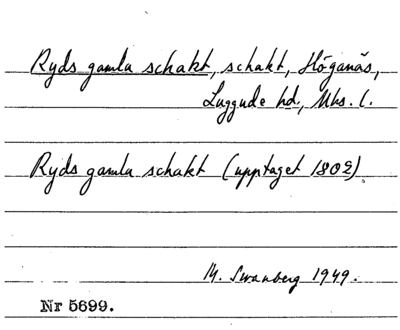 Ryds gamla schakt, schakt, Höganäs,
Luggude hd., Mhs. l.
Ryds gamla schakt (upptaget 1802).
M. Svanberg 1949.
Nr 5699.